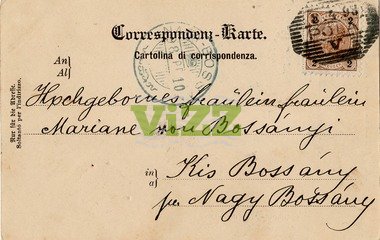 Correspondenz-Karte.
Cartolina di corrispondenza.
An/
Al/
Hochgebornes Fräulein Fräulein
Mariane von Bossányi
ViZZ
in/
a/
Kis Bossány
per Nagy Bossány
Nur für die Adresse.
Soltanto per l'indirizzo.